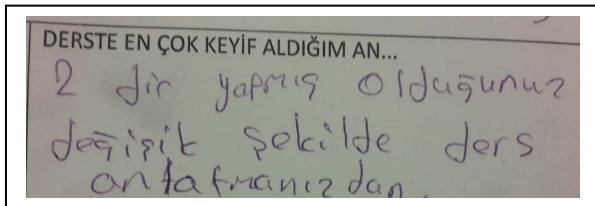 DERSTE EN ÇOK KEYİF ALDIĞIM AN...
2 dir yapmış olduğunuz
değişik şekilde ders
anlatmanızdan.